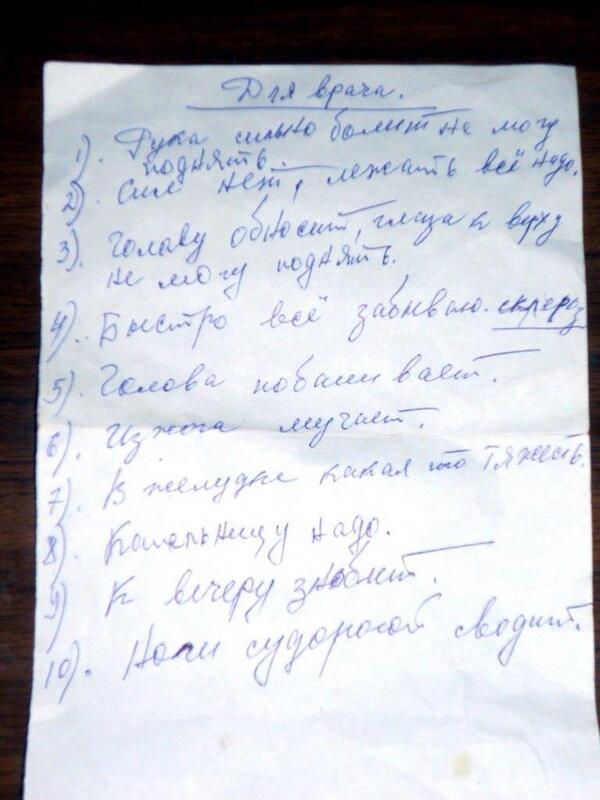 Для врача.
1). Рука сильно болит не могу
поднять.
2). Сил нет, лежать всё надо.
3). Голову обносит, глаза к верху
не могу поднять.
4). Быстро всё забываю. склероз
5). Голова побаливает.
6). Изжога мучает.
7). В желудке какая то тяжесть.
8). Капельницу надо.
9) К вечеру знобит.
10). Ноги судорогой сводит.